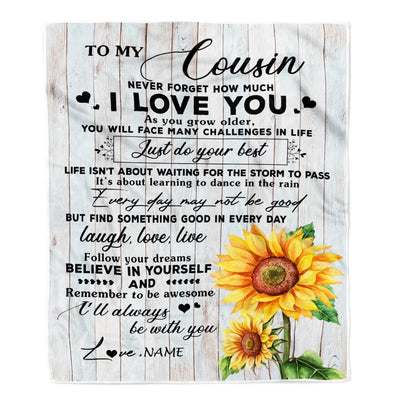 TO MY Cousin
NEVER FORGET HOW MUCH
I LOVE YOU
As you grow older,
YOU WILL FACE MANY CHALLENGES IN LIFE
Just do your best
LIFE ISN'T ABOUT WAITING FOR THE STORM TO PASS
It's about learning to dance in the rain
Every day may not be good
BUT FIND SOMETHING GOOD IN EVERY DAY
laugh, love, live
Follow your dreams
BELIEVE IN YOURSELF
AND
Remember to be awesome
I'll always
be with you
Love, NAME